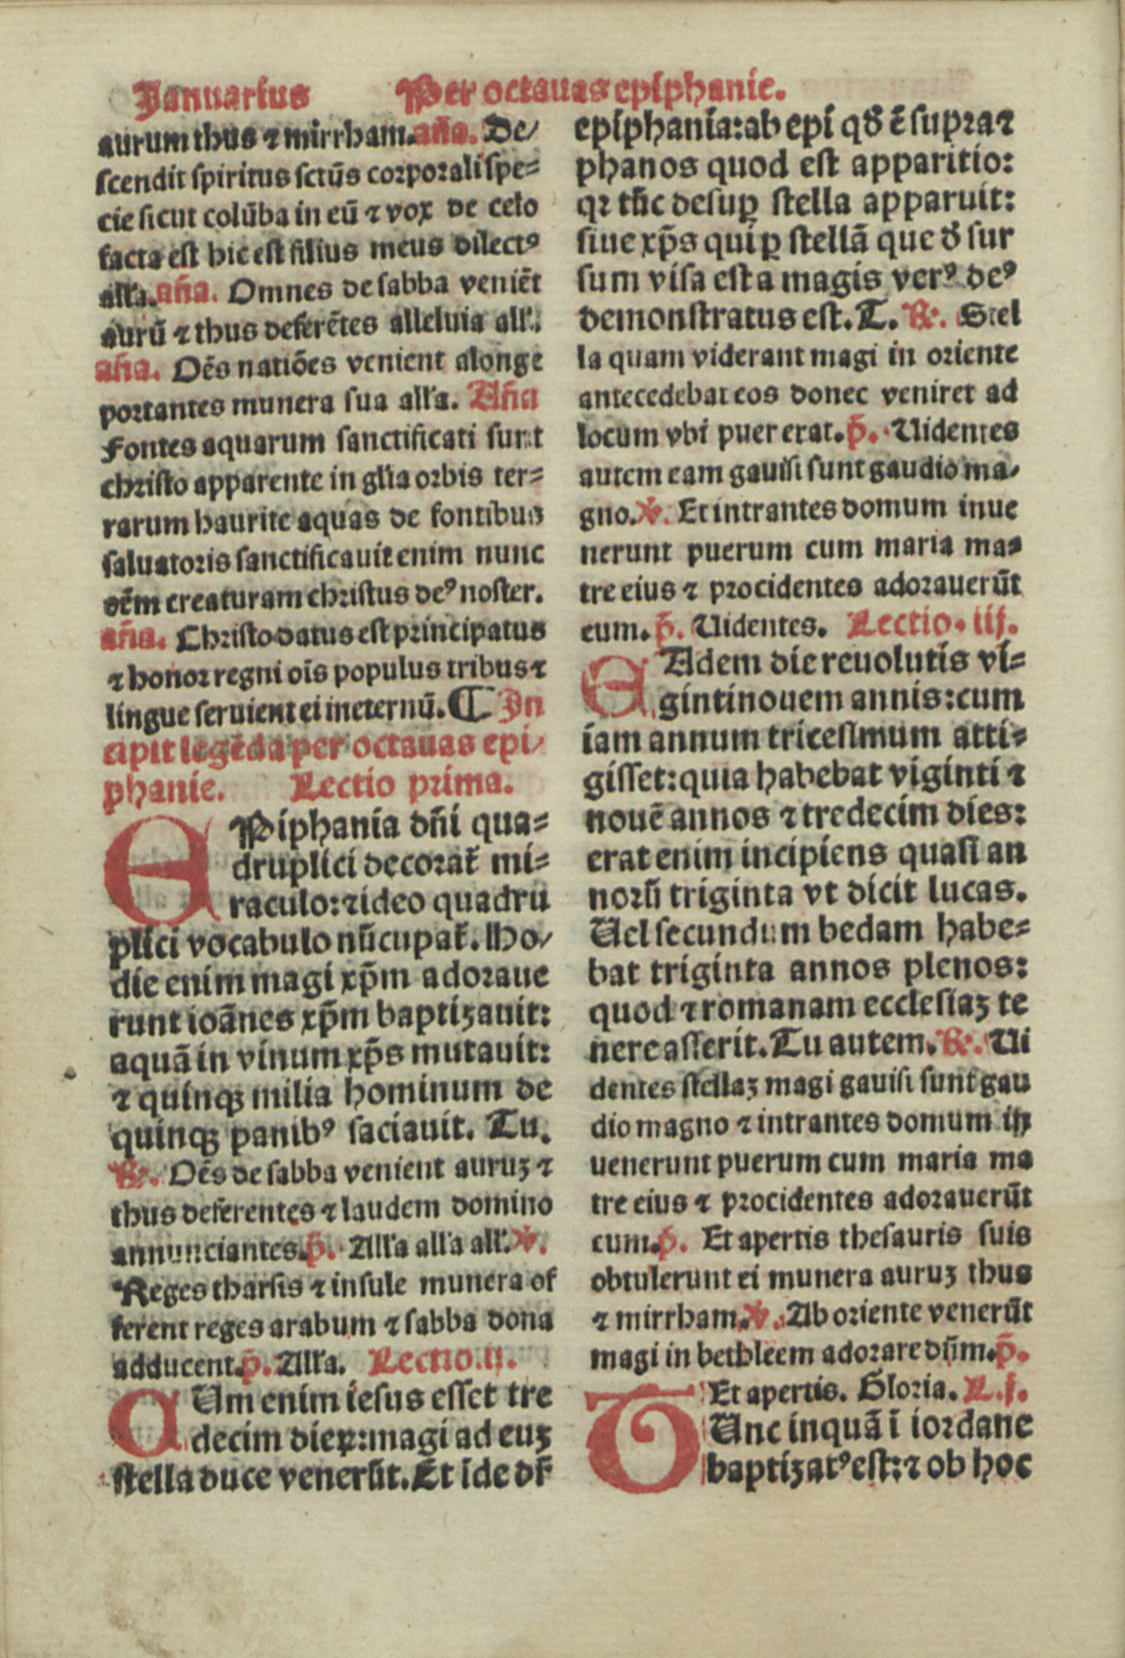 Januarius Per octauas epiphanie.
aurum thus ⁊ mirrham. añа. De/
scendit spiritus sctūs corporali spe=
cie sicut colūba in eū ⁊ vox de celo
facta est hic est filius meus dilectꝰ
alľa. aña. Omnes de sabba veniēt
aurū ⁊ thus deferētes alleluia alľ.
aña. Oēs natiōes venient a longe
portantes munera sua alľa. Aña
Fontes aquarum sanctificati sunt
christo apparente in glīa orbis ter=
rarum haurite aquas de fontibus
saluatoris sanctificauit enim nunc
oēm creaturam christus deꝰ noster.
aña. Christo datus est principatus
⁊ honor regni oīs populus tribus ⁊
lingue seruient ei in eternū. ¶ In
cipit legēda per octauas epi/
phanie. Lectio prima.
EPiphania dñi qua=
druplici decorať mi=
raculo: ⁊ ideo quadru
plici vocabulo nūcupať. Ho/
die enim magi xp̄m adoraue
runt ioānes xp̄m baptizauit:
aquā in vinum xp̄s mutauit:
⁊ quinqꝫ milia hominum de
quinqꝫ panibꝰ saciauit. Tu.
℟. Oēs de sabba venient auruꝫ ⁊
thus deferentes ⁊ laudem domino
annunciantes. p̄. Alľa alľa alľ. ℣.
Reges tharsis ⁊ insule munera of
ferent reges arabum ⁊ sabba dona
adducent. p̄. Alľa. Lectio. ii.
CUm enim iesus esset tre
decim dieꝝ: magi ad euꝫ
stella duce venerūt. Et īde dr̄
epiphania: ab epi qđ ē supra ⁊
phanos quod est apparitio:
qꝛ tūc desuꝑ stella apparuit:
siue xp̄s qui ꝑ stellā que đ sur
sum visa est a magis verꝰ deꝰ
demonstratus est. T. ℟. Stel
la quam viderant magi in oriente
antecedebat eos donec veniret ad
locum vbi puer erat. p̄. Uidentes
autem eam gauisi sunt gaudio ma/
gno. ℣. Et intrantes domum inue
nerunt puerum cum maria ma=
tre eius ⁊ procidentes adorauerūt
eum. p̄. Uidentes. Lectio. iij.
EAdem die reuolutis vi=
ginti nouem annis: cum
iam annum tricesimum atti=
gisset: quia habebat viginti ⁊
nouē annos ⁊ tredecim dies:
erat enim incipiens quasi an
norū triginta vt dicit lucas.
Uel secundum bedam habe=
bat triginta annos plenos:
quod ⁊ romanam ecclesiaꝫ te
nere asserit. Tu autem. ℟. Ui
dentes stellaꝫ magi gauisi sunt gau
dio magno ⁊ intrantes domum in
uenerunt puerum cum maria ma
tre eius ⁊ procidentes adorauerūt
eum. p̄. Et apertis thesauris suis
obtulerunt ei munera auruꝫ thus
⁊ mirrham. ℣. Ab oriente venerūt
magi in bethleem adorare dn̄m. p̄.
Et apertis. Gloria. L. j.
TUnc inquā ī iordane
baptizatꝰ est: ⁊ ob hoc